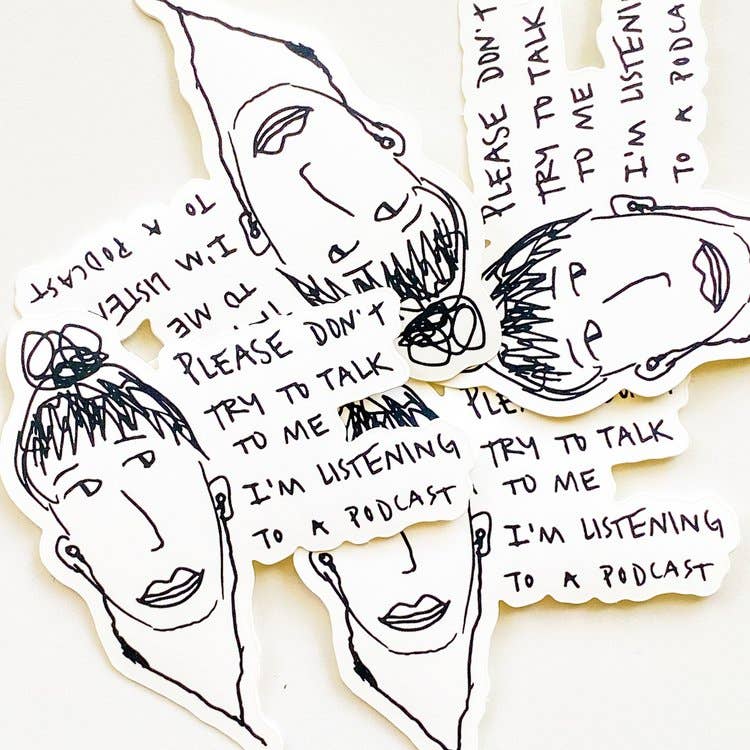 PLEASE DON'T
TRY TO TALK
TO ME
I'M LISTENI
TO A PODCA
TO ME
I'M LISTE
TO A PODCAST
PLEASE DON'T
TRY TO TALK
TO ME
I'M LISTENING
TO A PODCAST
TRY TO TALK
TO ME
I'M LISTENING
TO A PODCAST